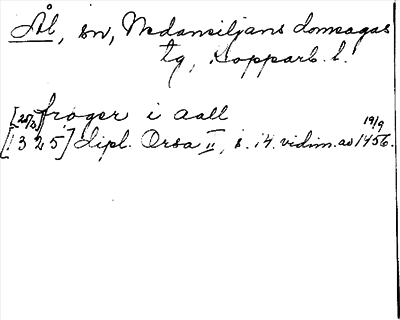 Ål, sn, Nedansiljans domsagas
tg, Kopparb. l.
[20/2] froger i aall
[1325] dipl. Orsa II, s. 14. vidim. av 19/9 1456.